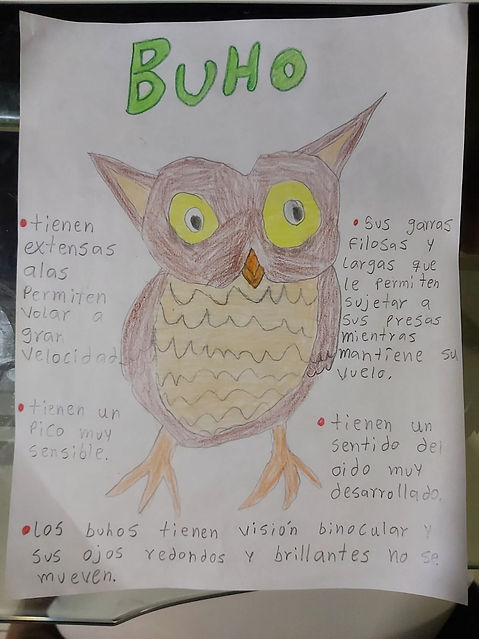 BUHO
• tienen
extensas
alas
Permiten
Volar a
gran
Velocidad
• Sus garras
Filosas y
largas que
le permiten
sujetar a
sus presas
mientras
mantiene su
vuelo.
• tienen un
Pico muy
sensible.
• tienen un
sentido del
oido muy
desarrollado.
• Los buhos tienen visión binocular y
sus ojos redondos y brillantes no se
mueven.